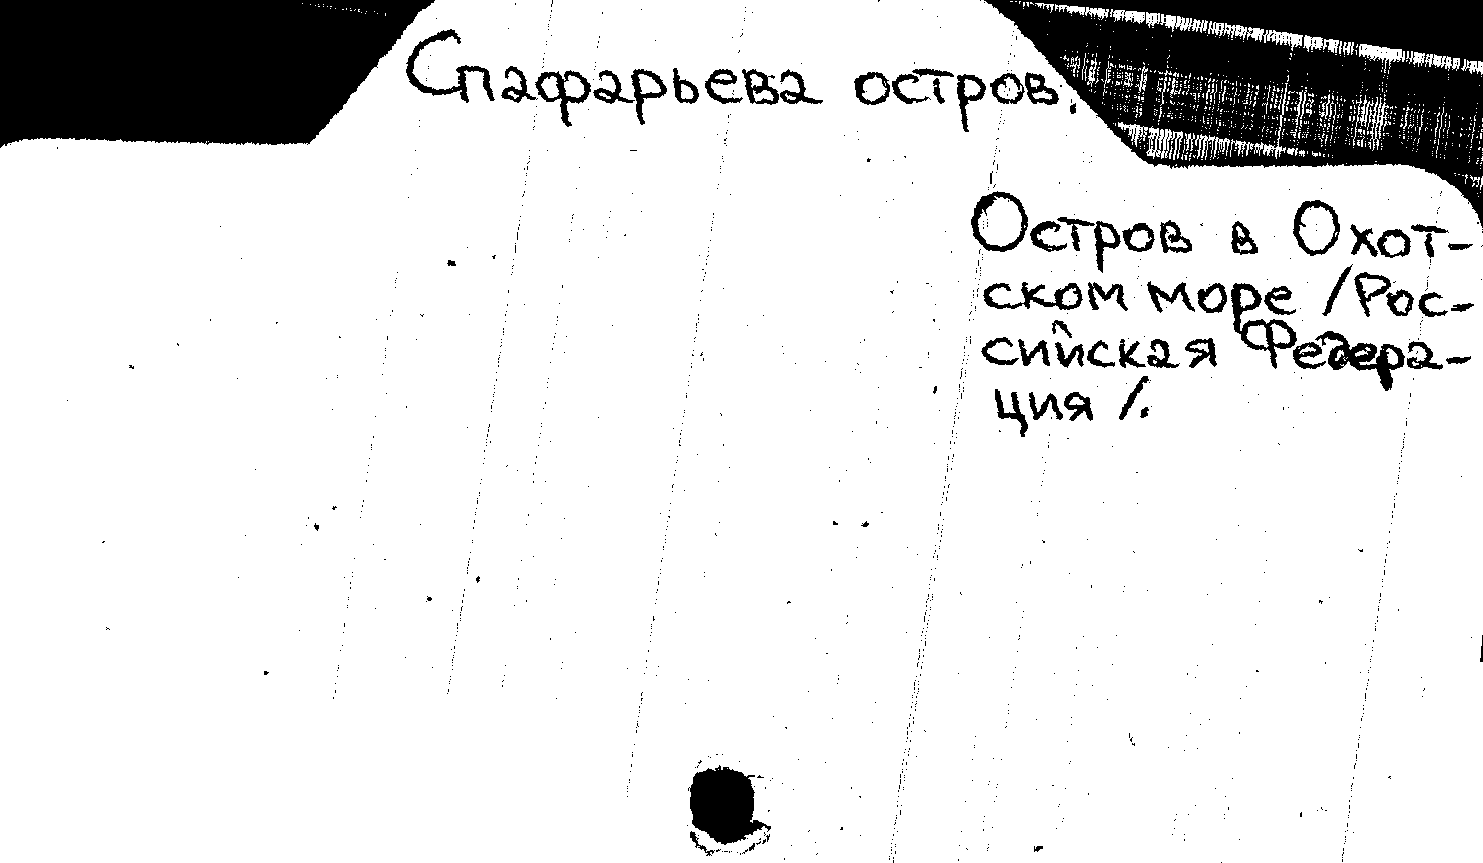 Спафарьева остров.
Остров в Охот-
ском море /Рос-
сийская Федера-
ция/.